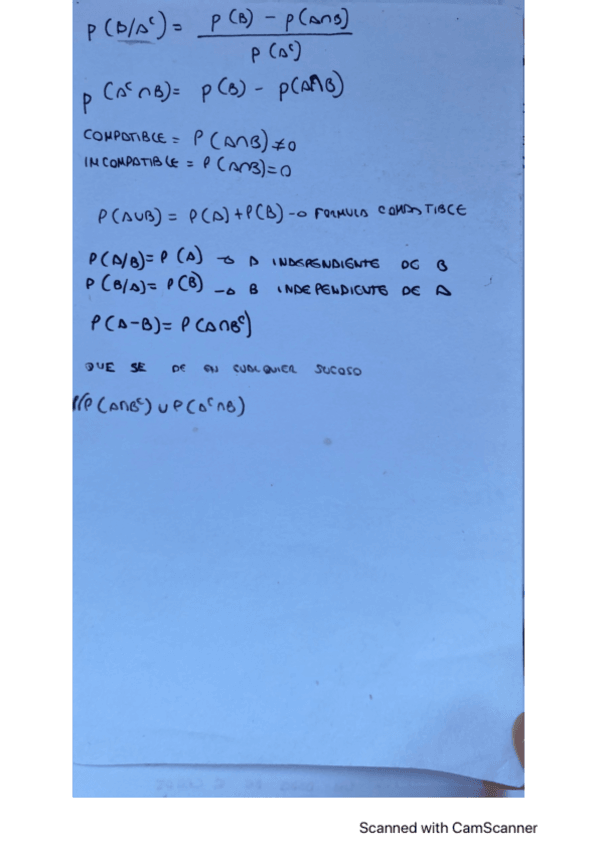 P(B/Aᶜ) = P(B) - P(A∩B) / P(Aᶜ)
P(Aᶜ∩B) = P(B) - P(A∩B)
COMPATIBLE = P(A∩B) ≠ 0
INCOMPATIBLE = P(A∩B) = 0
P(A∪B) = P(A) + P(B) → FORMULA COMPATIBLE
P(A/B) = P(A) → A INDEPENDIENTE DE B
P(B/A) = P(B) → B INDEPENDIENTE DE A
P(A-B) = P(A∩Bᶜ)
QUE SE DE EN CUALQUIER SUCESO
P(A∩Bᶜ) ∪ P(Aᶜ∩B)
Scanned with CamScanner